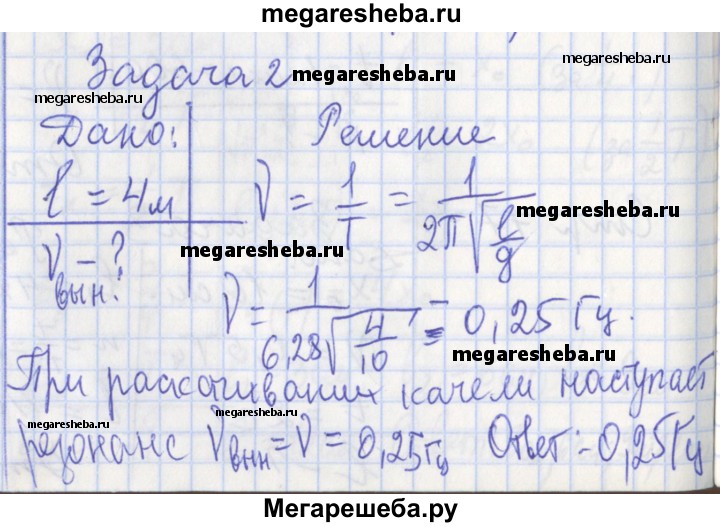 megaresheba.ru
Задача 2
megaresheba.ru
megaresheba.ru
megaresheba.ru
Дано: Решение
l = 4м ν = 1/T = 1/(2π√(l/g))
megaresheba.ru
megaresheba.ru
νвын. - ?
ν = 1/(6,28√(4/10)) = 0,25 Гц.
megaresheba.ru
При раскачивании качели наступает
megaresheba.ru
megaresheba.ru
резонанс νвнн = ν = 0,25 Гц Ответ: 0,25 Гц
megaresheba.ru
Мегарешеба.ру